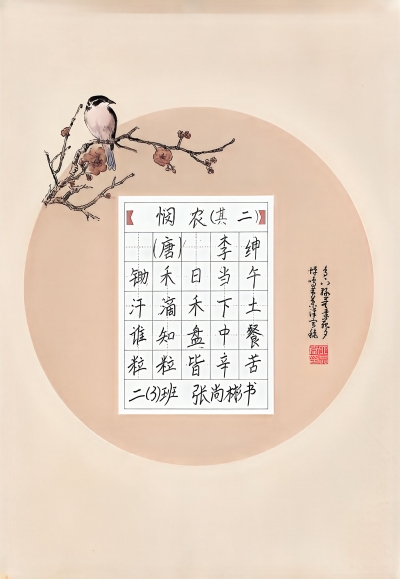 悯农(其二)
(唐) 李绅
锄禾日当午
汗滴禾下土
谁知盘中餐
粒粒皆辛苦
二(3)班 张尚彬书